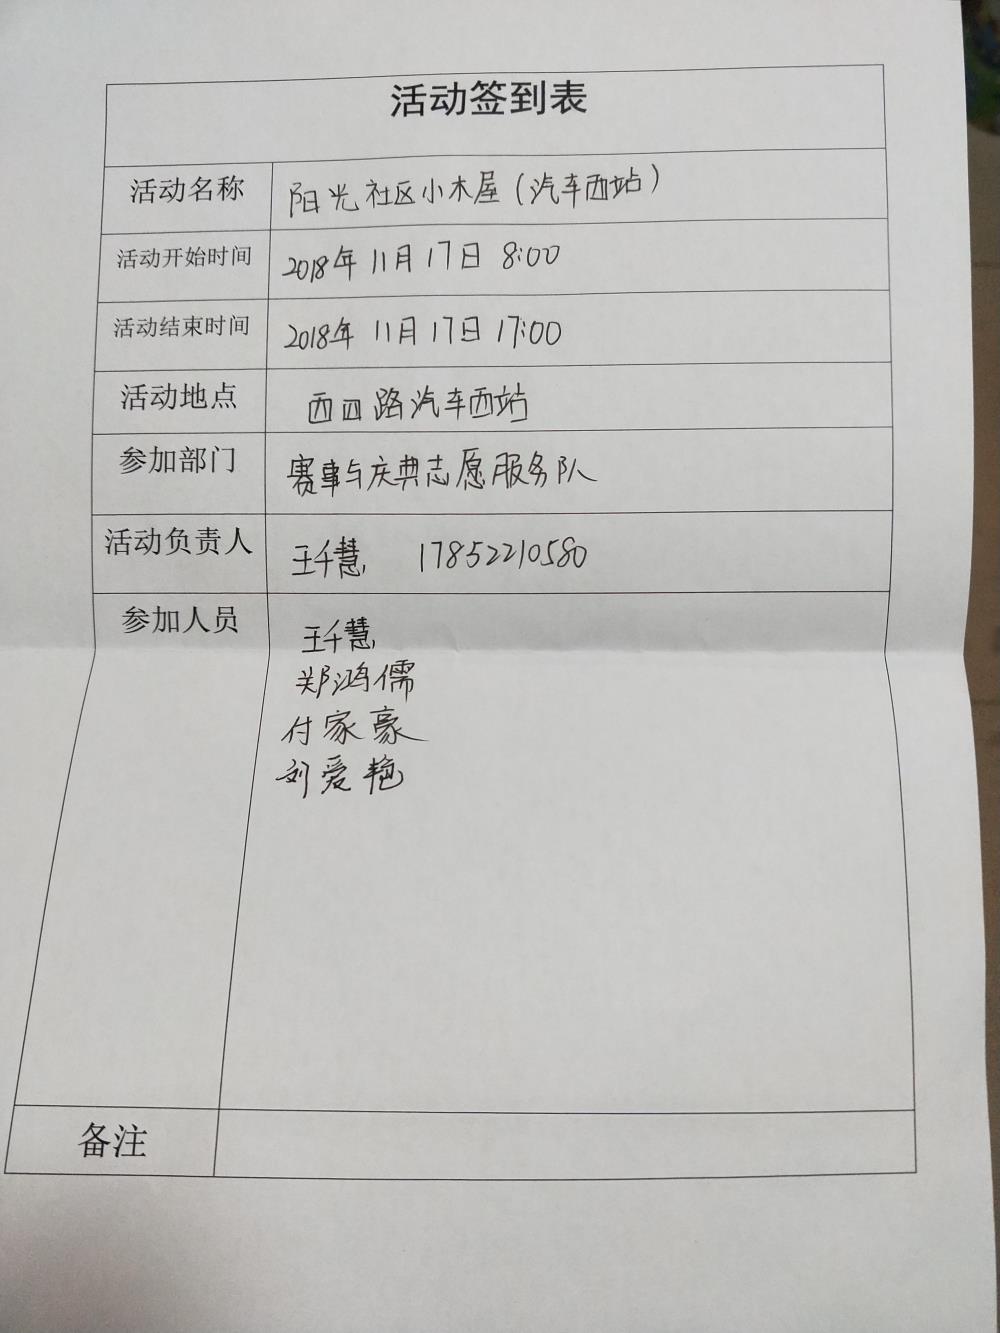 活动签到表
活动名称 阳光社区小木屋(汽车西站)
活动开始时间 2018年11月17日 8:00
活动结束时间 2018年11月17日17:00
活动地点 西四路汽车西站
参加部门 赛事与庆典志愿服务队
活动负责人 王千慧 17852210580
参加人员 王千慧
郑鸿儒
付家豪
刘爱艳
备注